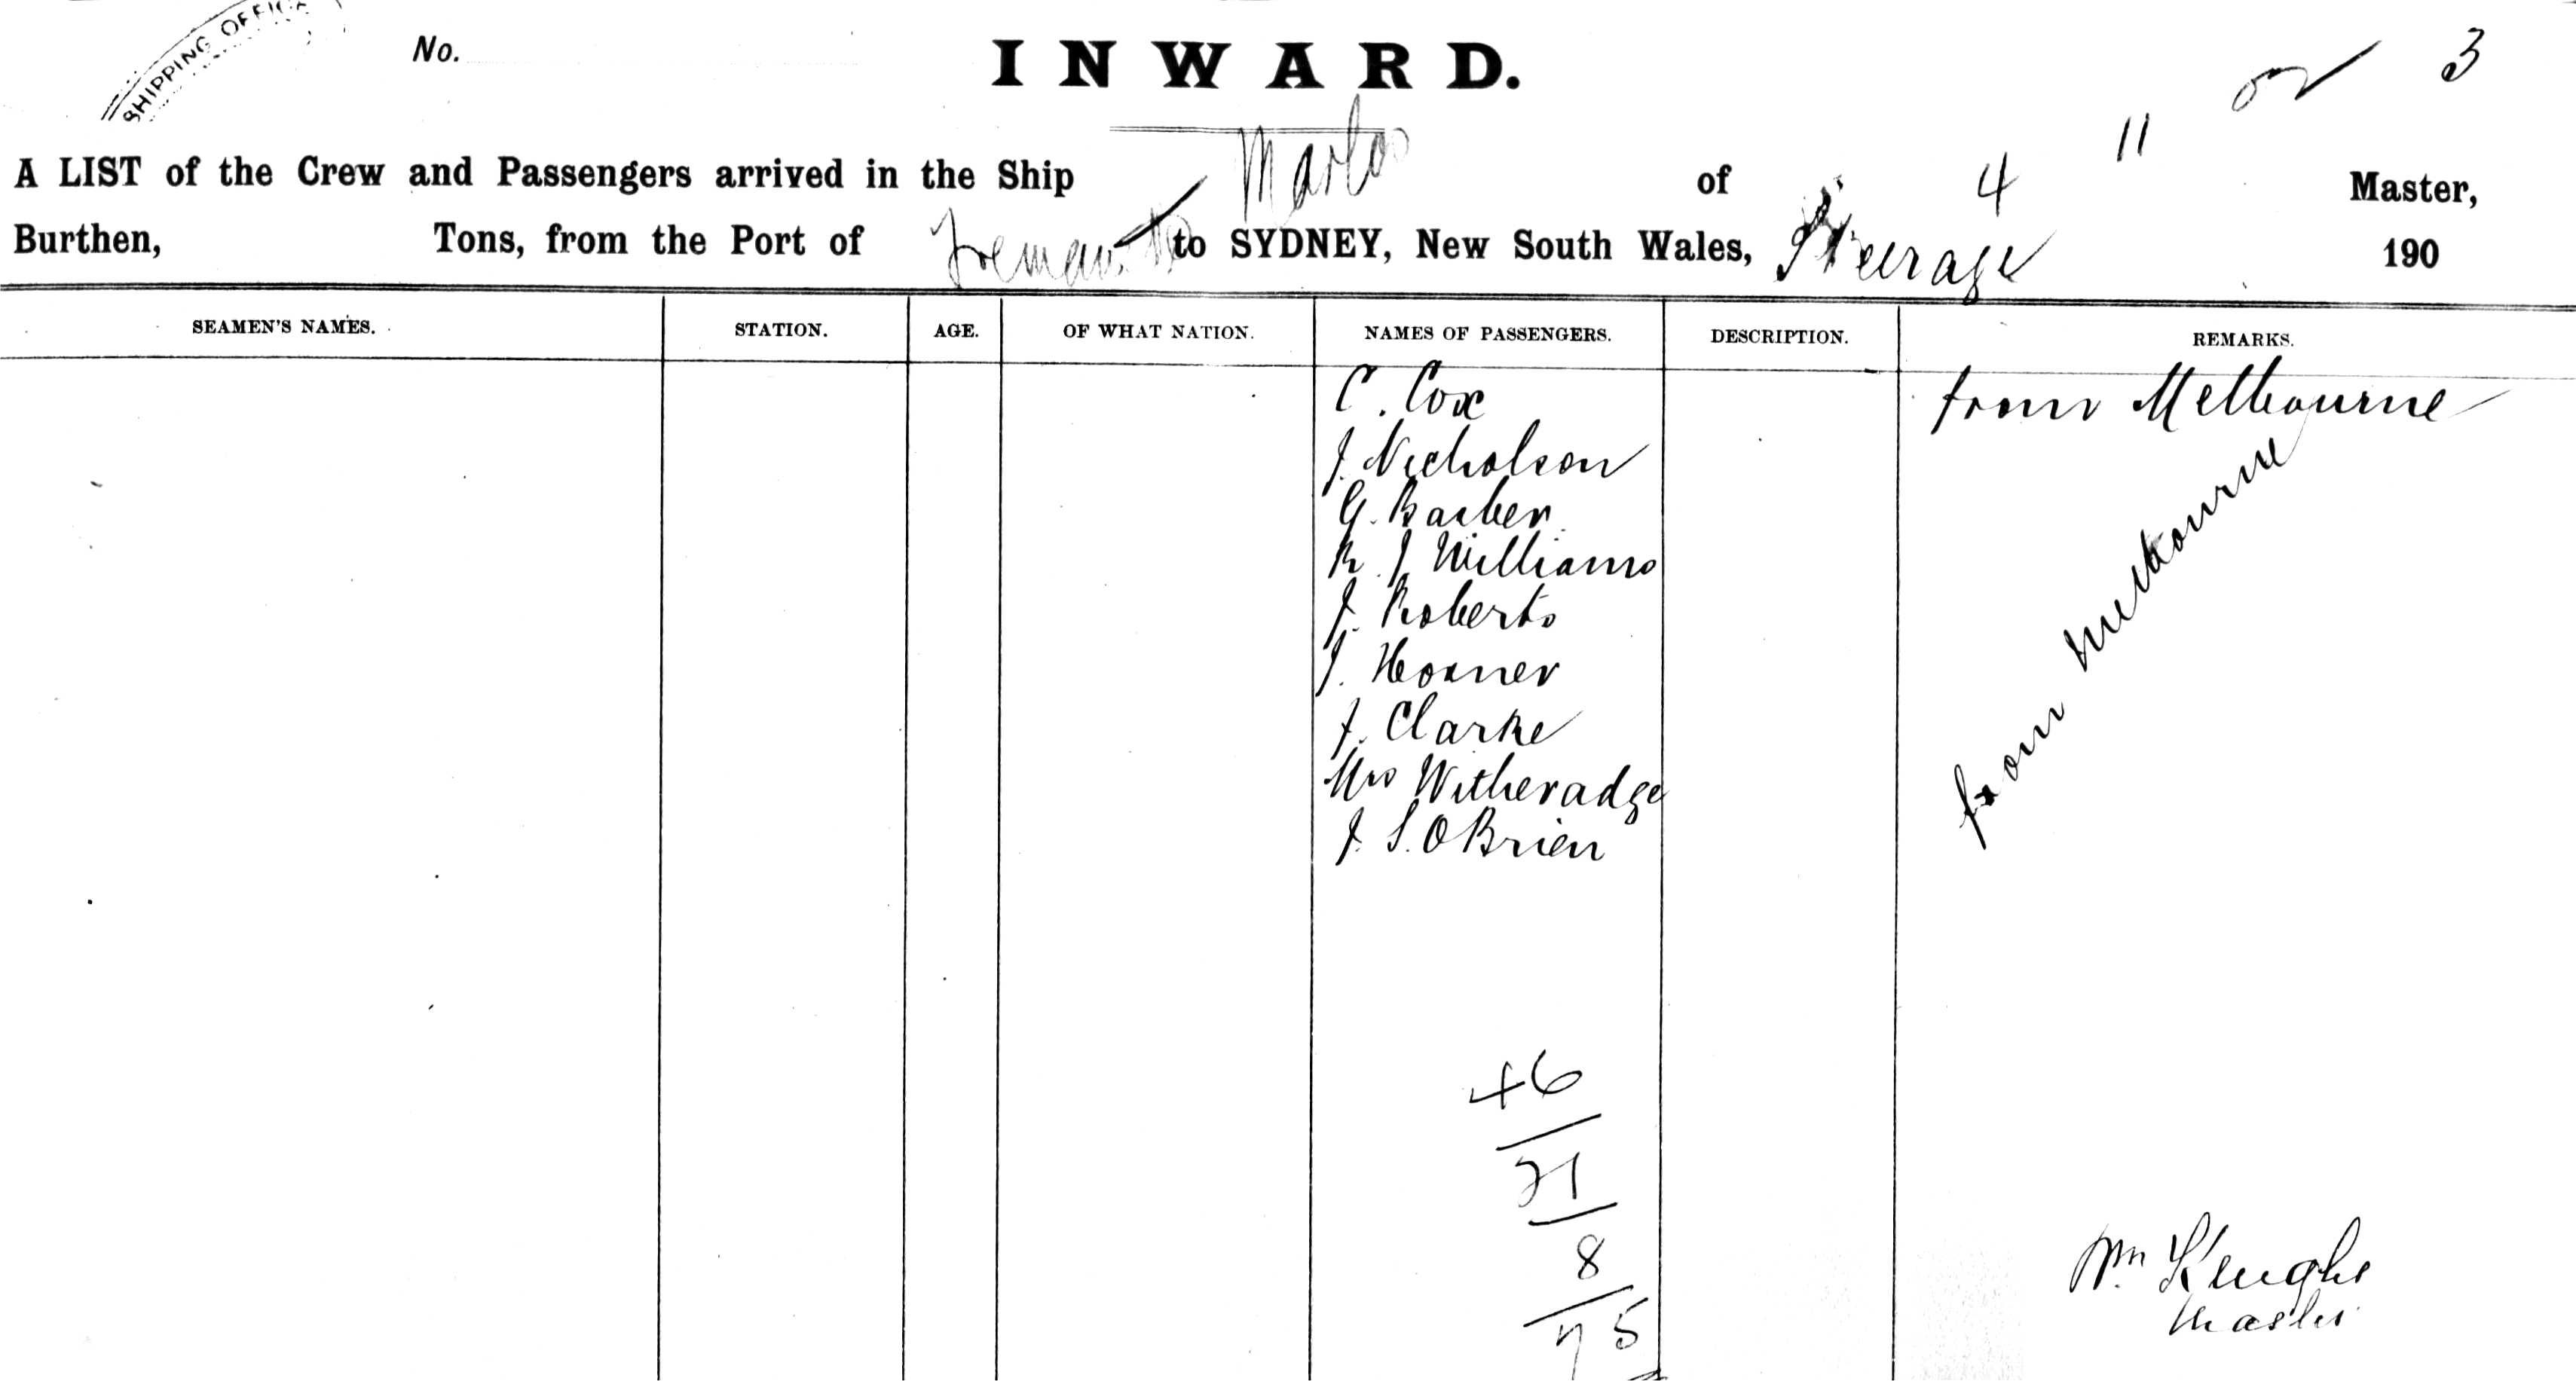 SHIPPING OFFICE
No.
INWARD.
or 3
4 11
A LIST of the Crew and Passengers arrived in the Ship of Master,
Burthen, Tons, from the Port of to SYDNEY, New South Wales, Steerage 190
SEAMEN'S NAMES. STATION. AGE. OF WHAT NATION. NAMES OF PASSENGERS. DESCRIPTION. REMARKS.
C. Cox from Melbourne
J. Nicholson
G. Barber
R. J Williams
J. Roberts
J. Horner
J. Clarke
Mrs Witheradge
J. S. OBrien
from Melbourne
46
21
8
75
Wm
Master